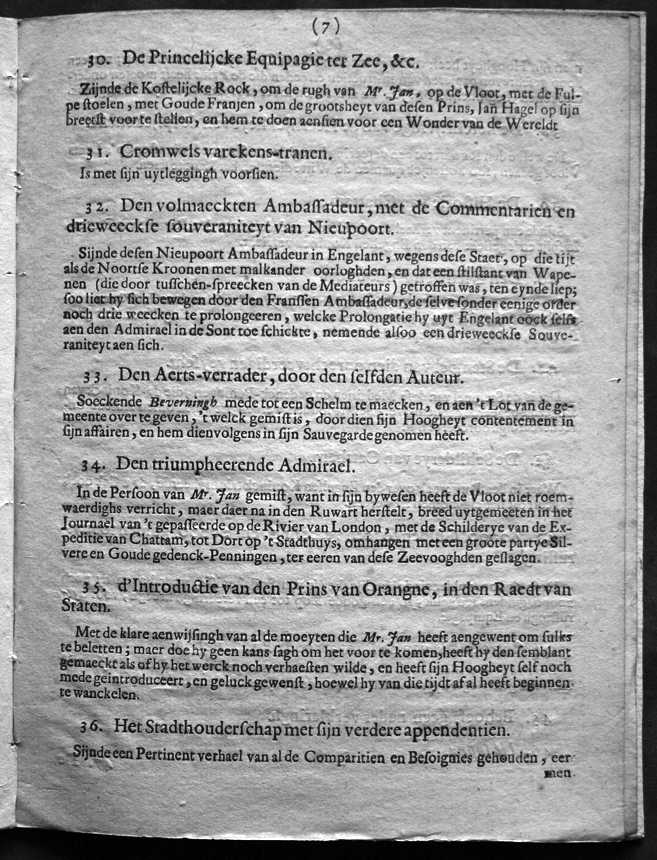 (7)
30. De Princelijcke Equipagie ter Zee, &c.
Zijnde de Koſtelijcke Rock, om de rugh van Mr. Jan, op de Vloot, met de Ful-
pe ſtoelen, met Goude Franjen, om de grootsheyt van deſen Prins, Jan Hagel op ſijn
breetſt voor te ſtellen, en hem te doen aenſien voor een Wonder van de Wereldt
31. Cromwels varckens-tranen.
Is met ſijn uytleggingh voorſien.
32. Den volmaeckten Ambaſſadeur, met de Commentarien en
drieweeckſe ſouveraniteyt van Nieupoort.
Sijnde deſen Nieupoort Ambaſſadeur in Engelant, wegens deſe Staet, op die tijt
als de Noortſe Kroonen met malkander oorloghden, en dat een ſtilſtant van Wape-
nen (die door tuſſchen-ſpreecken van de Mediateurs) getroffen was, ten eynde liep;
ſoo liet hy ſich bewegen door den Franſſen Ambaſſadeur, de ſelve ſonder eenige order
noch drie weecken te prolongeeren, welcke Prolongatie hy uyt Engelant oock ſelfs
aen den Admirael in de Sont toe ſchickte, nemende alſoo een drieweeckſe Souve-
raniteyt aen ſich.
33. Den Aerts-verrader, door den ſelfden Auteur.
Soeckende Beverningh mede tot een Schelm te maecken, en aen 't Lot van de ge-
meente over te geven, 't welck gemiſt is, door dien ſijn Hoogheyt contentement in
ſijn affairen, en hem dienvolgens in ſijn Sauvegarde genomen heeft.
34. Den triumpheerende Admirael.
In de Perſoon van Mr. Jan gemiſt, want in ſijn bywesen heeft de Vloot niet roem-
waerdighs verricht, maer daer na in den Ruwart herſtelt, breed uytgemeeten in het
Journael van 't gepaſſeerde op de Rivier van London, met de Schilderye van de Ex-
peditie van Chattam, tot Dort op 't Stadthuys, omhangen met een groote partye Sil-
vere en Goude gedenck-Penningen, ter eeren van deſe Zeevooghden geſlagen.
35. d'Introductie van den Prins van Orangne, in den Raedt van
Staten.
Met de klare aenwijſingh van al de moeyten die Mr. Jan heeft aengewent om ſulks
te beletten; maer doe hy geen kans ſagh om het voor te komen, heeft hy den ſemblant
gemaeckt als of hy het werck noch verhaeſten wilde, en heeft ſijn Hoogheyt ſelf noch
mede geintroduceert, en geluck gewenſt, hoewel hy van die tijdt af al heeft beginnen
te wanckelen.
36. Het Stadthouderſchap met ſijn verdere appendentien.
Sijnde een Pertinent verhael van al de Comparitien en Beſoignies gehouden, eer
men.